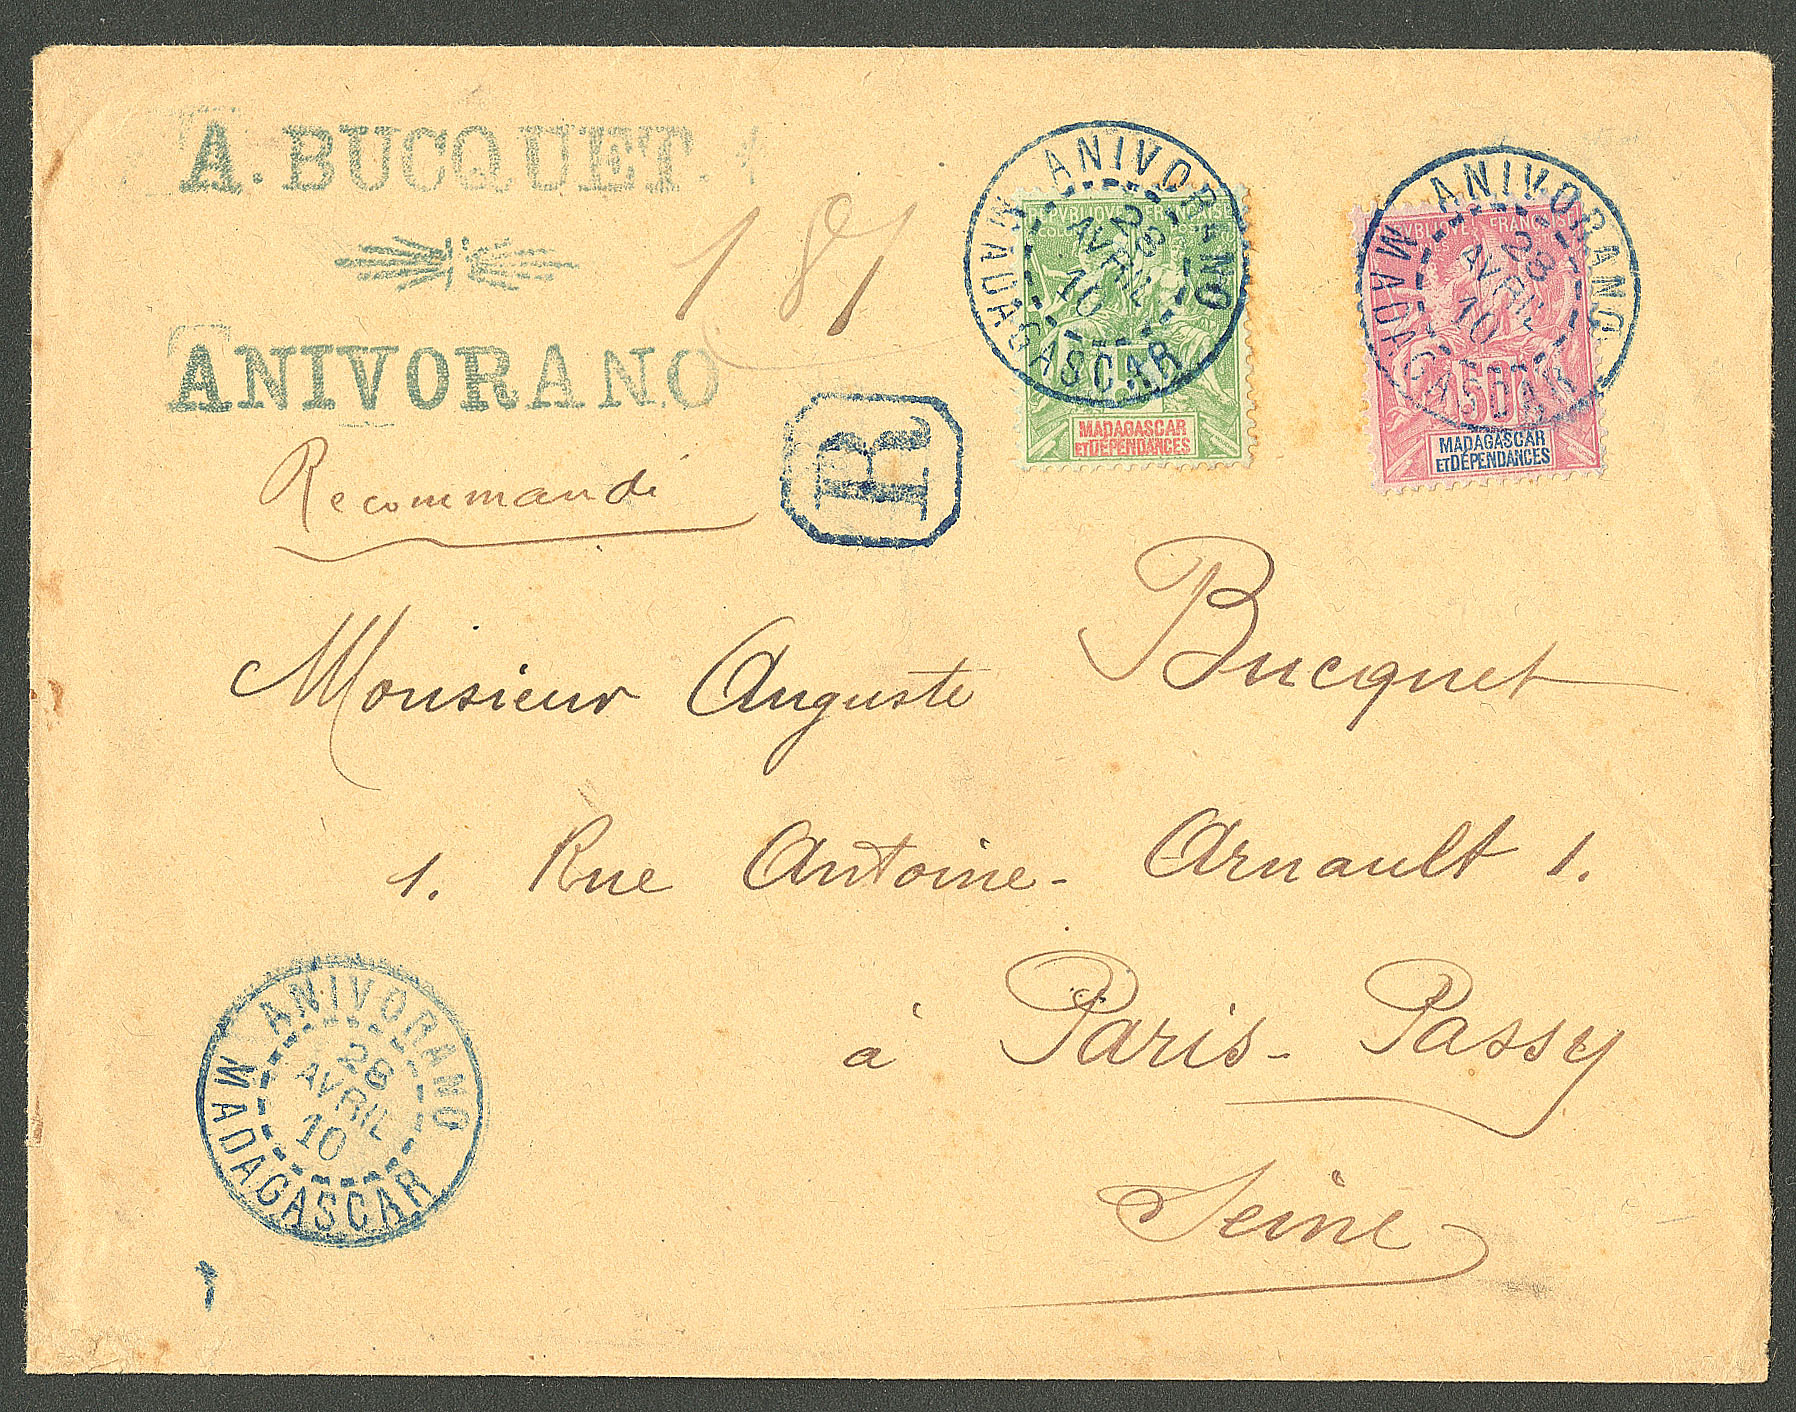 A. BUCQUET.
ANIVORANO
181
Recommandé
R
ANIVORANO
28
AVRIL
10
MADAGASCAR
REPVBLIQVE FRANÇAISE
MADAGASCAR
ET DÉPENDANCES
ANIVORANO
28
AVRIL
10
MADAGASCAR
REPVBLIQVE FRANÇAISE
50
MADAGASCAR
ET DÉPENDANCES
Monsieur Auguste Bucquet
1. Rue Antoine-Arnault 1.
à Paris-Passy
Seine
ANIVORANO
28
AVRIL
10
MADAGASCAR